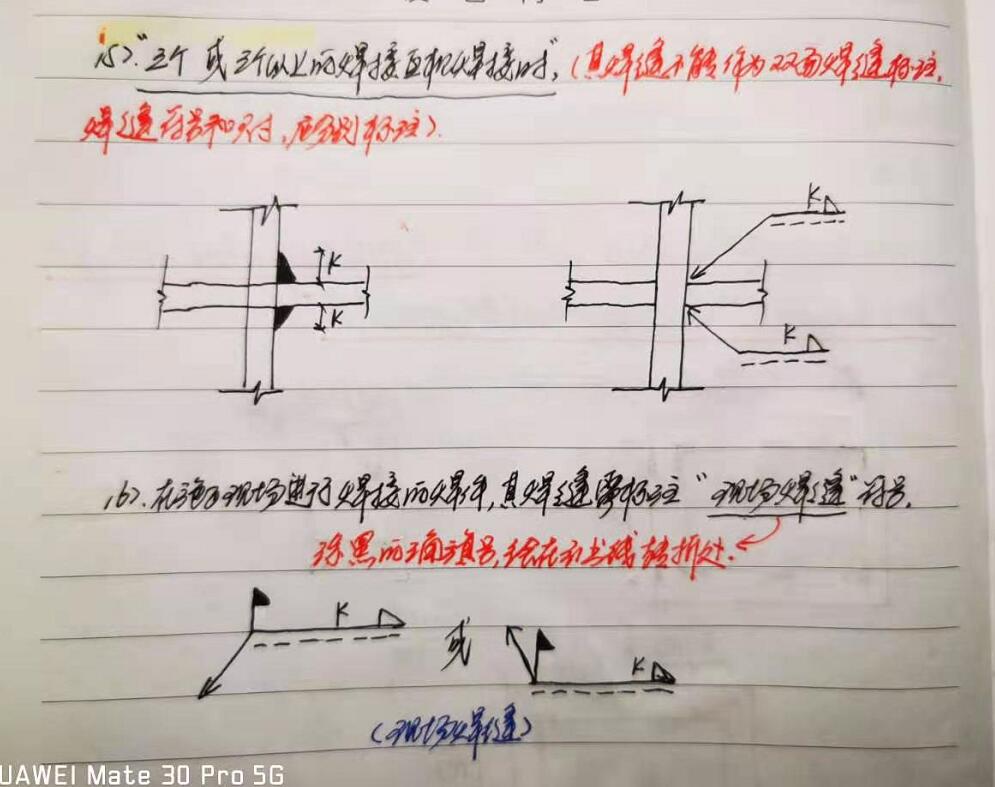 (5)."三个或三个以上的焊接互相焊接时",(其焊缝不能作为双面焊缝标注.
焊缝符号和尺寸,应分别标注).
K
K
K
K
(6).在施工现场进行焊接的焊件,其焊缝需标注"现场焊缝"符号.
涂黑的三角旗号,绘在引出线转折处.
K
或
K
(现场焊缝)
UAWEI Mate 30 Pro 5G